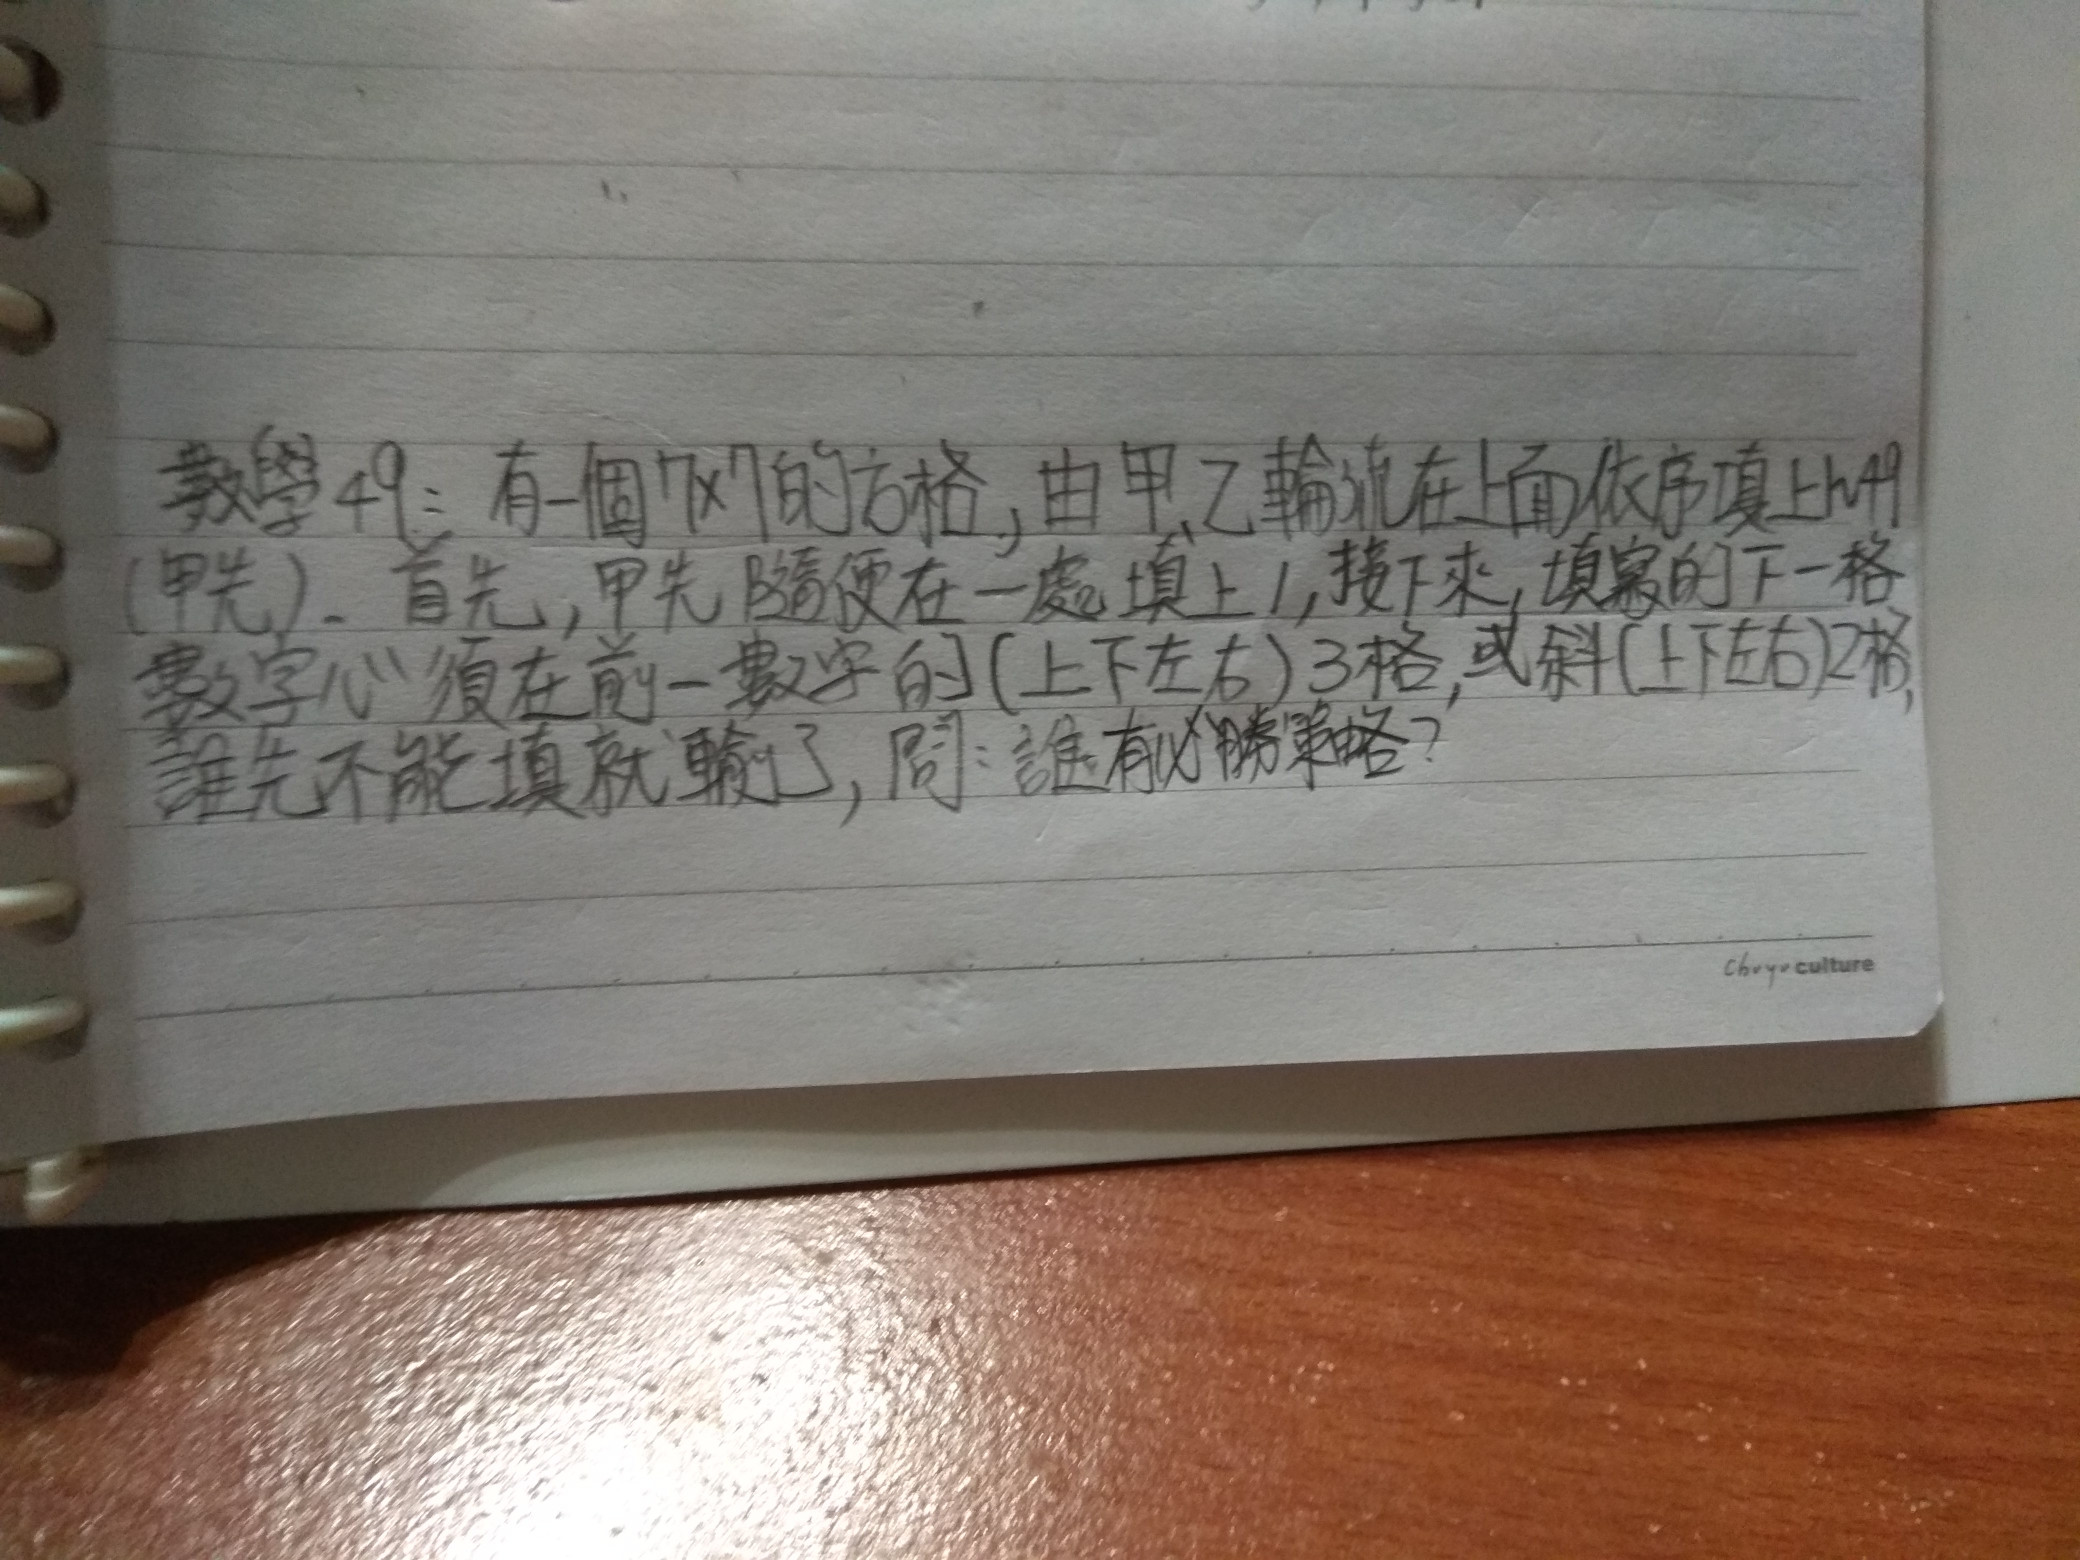 數學49：有一個7×7的方格，由甲、乙輪流在上面依序填上1~49
(甲先)。首先，甲先隨便在一處填上1，接下來，填寫的下一格
數字必須在前一數字的(上下左右)3格，或斜(上下左右)2格，
誰先不能填就輸了，問：誰有必勝策略？
Chuyu culture